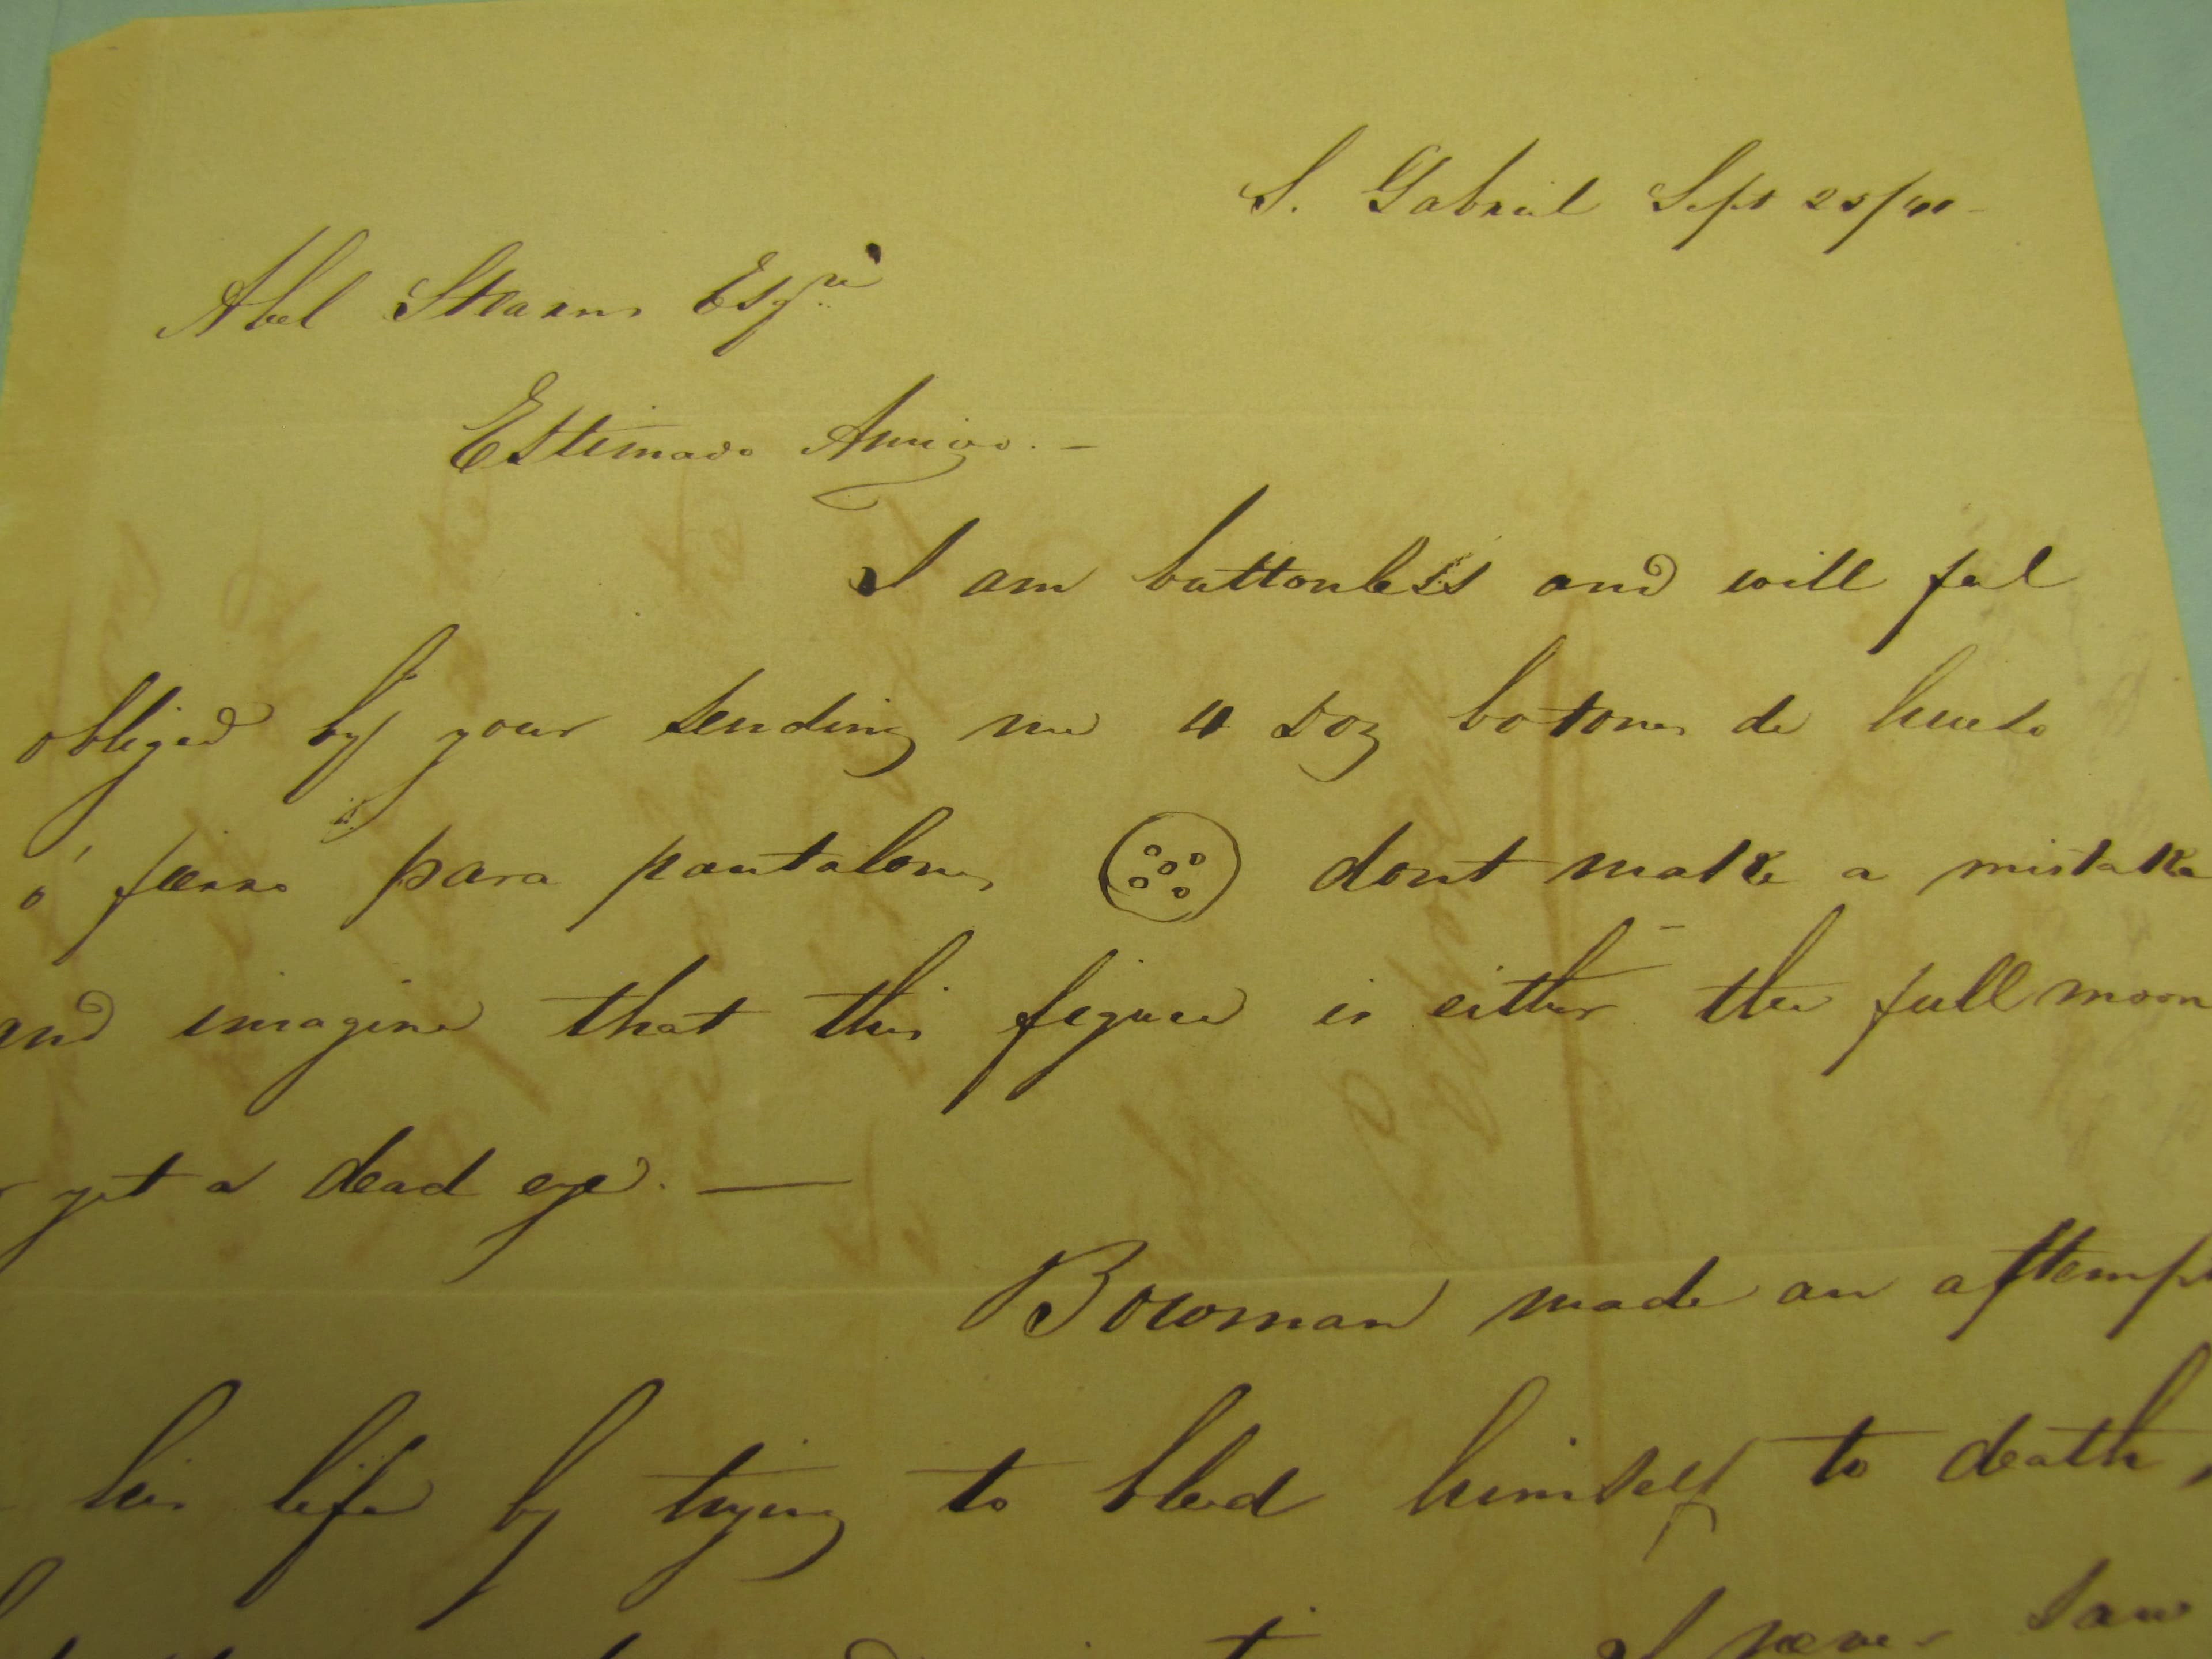 S. Gabriel Sept 25/40
Abel Stearns Esqre
Estimado Amigo. —
I am buttonless and will feel
obliged by your sending me 4 doz botones de hueso
ó fierro para pantalones dont make a mistake
and imagine that this figure is either the full moon
yet a dead eye. —
Bowman made an attempt
his life by trying to bleed himself to death,
I never saw